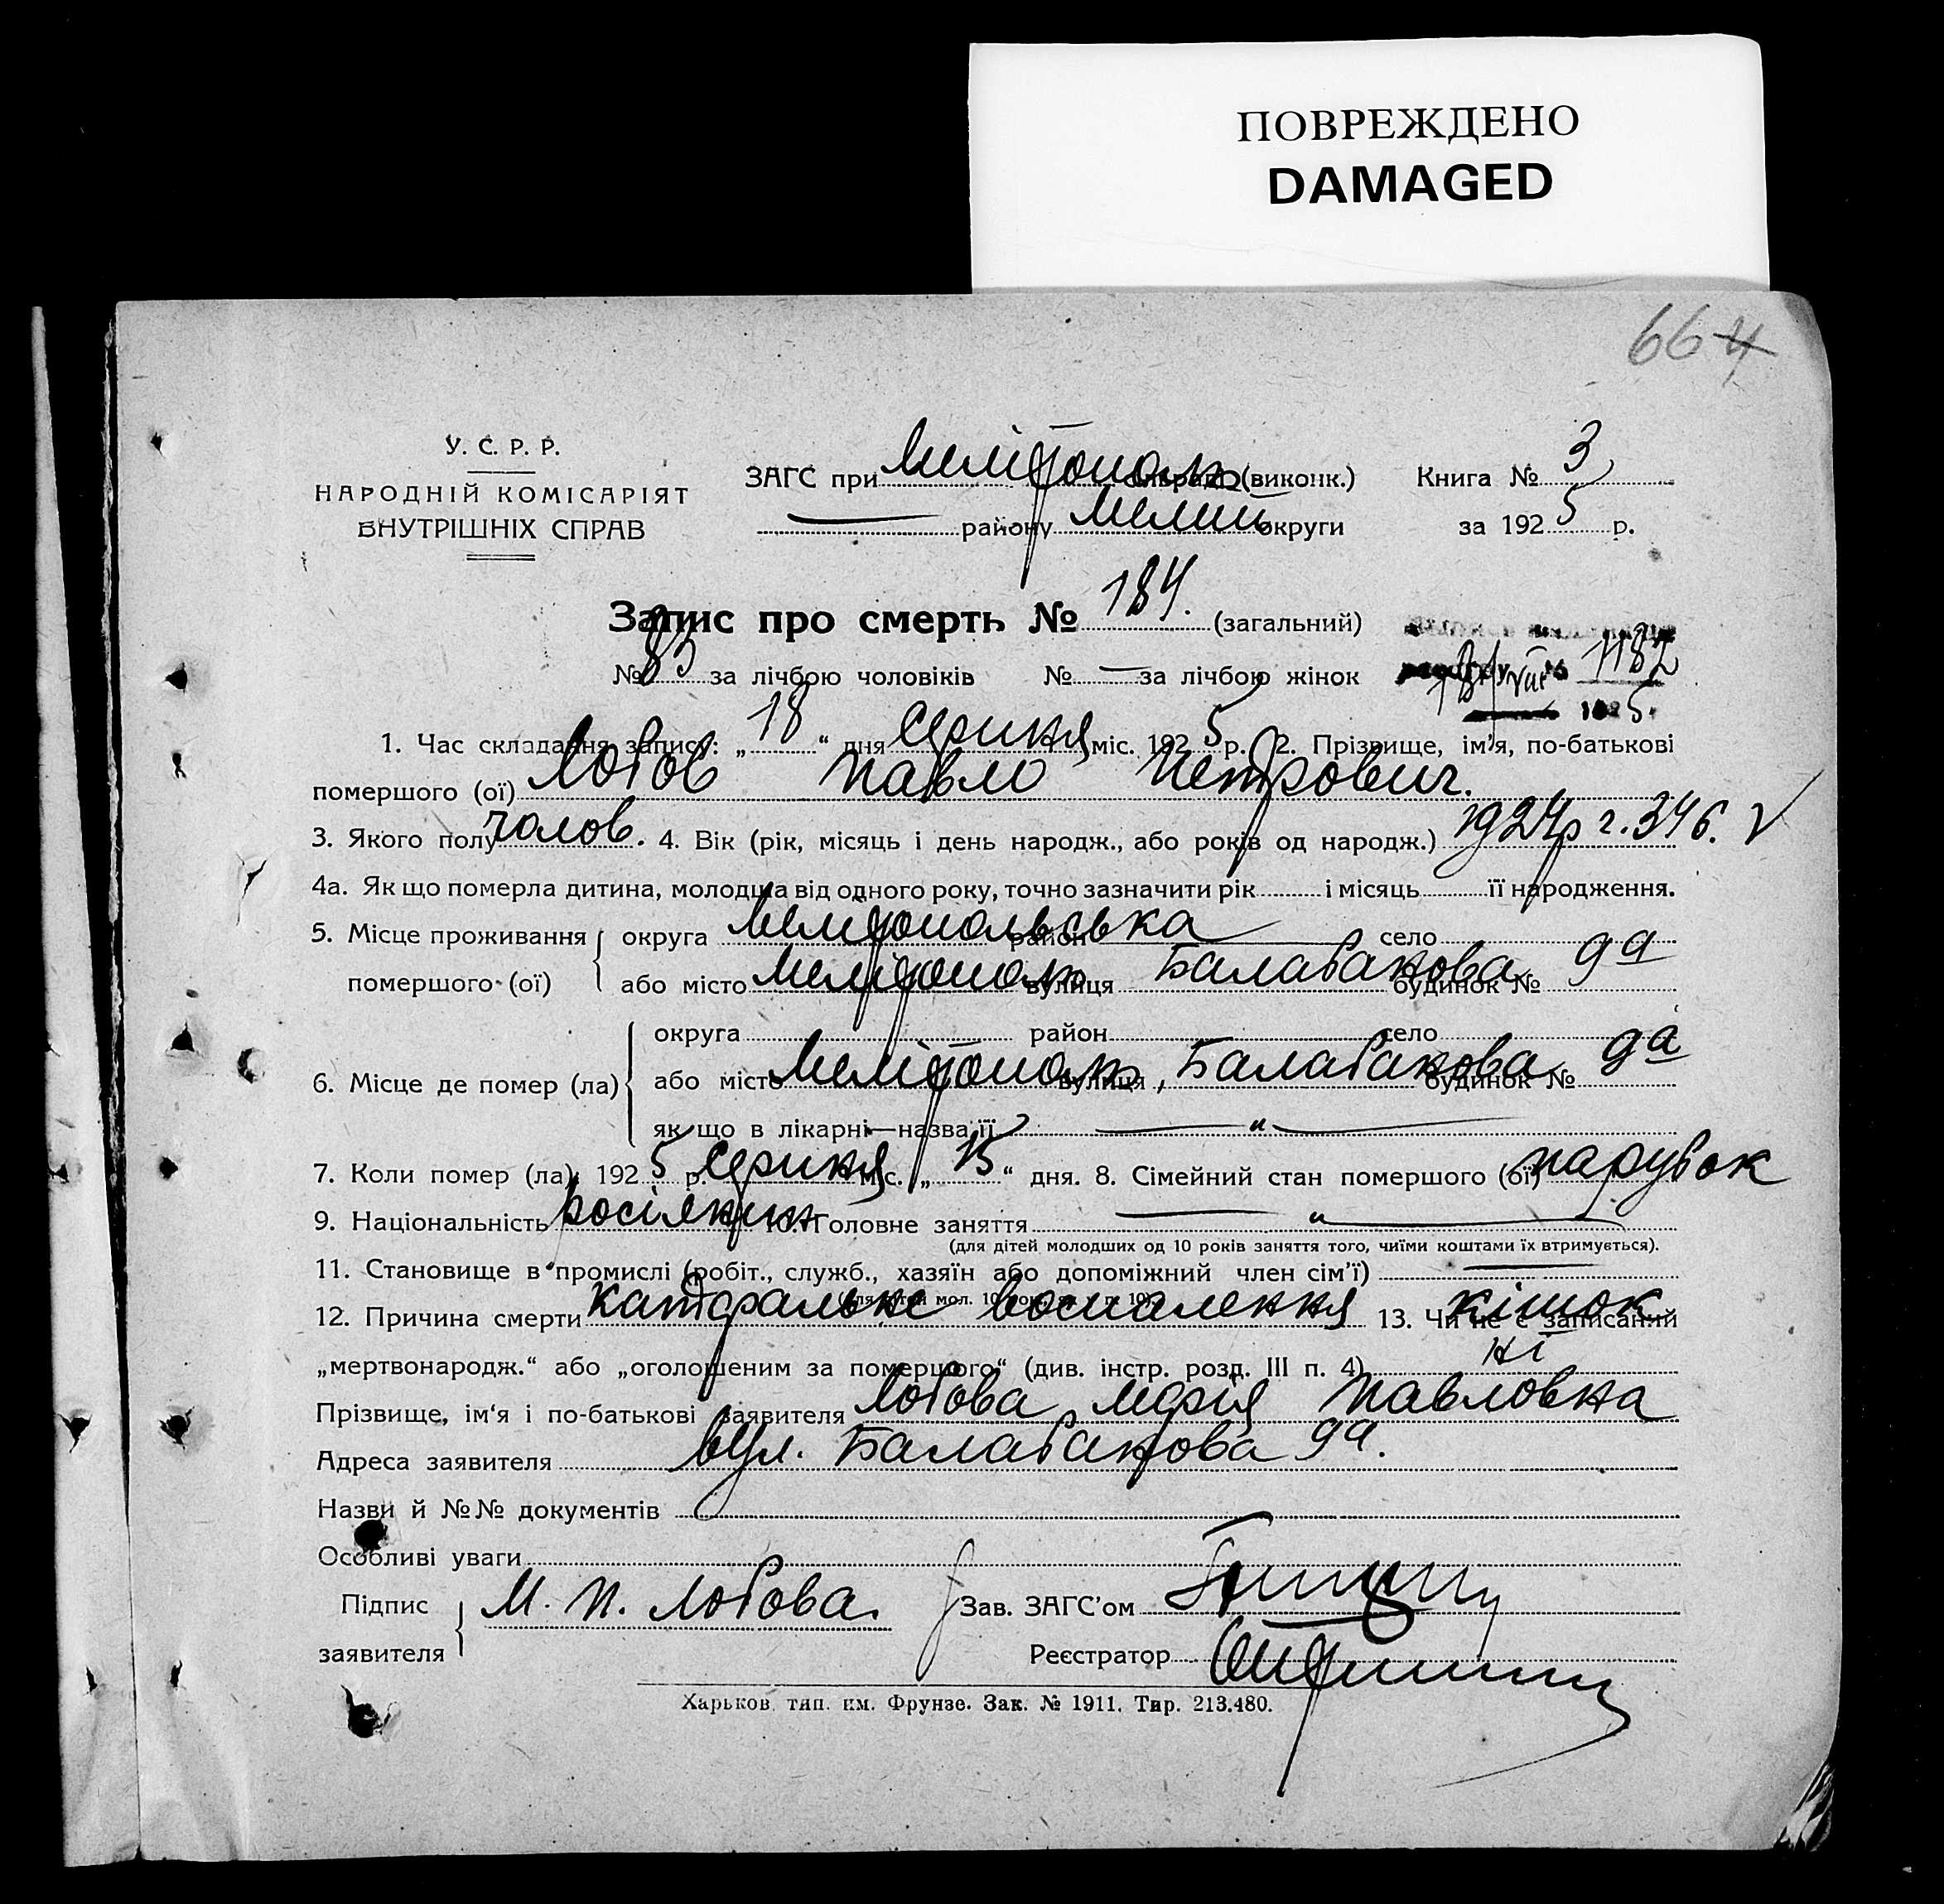 ПОВРЕЖДЕНО
DAMAGED
664
У. С. Р. Р.
НАРОДНІЙ КОМІСАРІЯТ
ВНУТРІШНІХ СПРАВ
ЗАГС при Мелітополь (виконк.) Книга № 3
— району Мелит округи за 1925 р.
Запис про смерть № 184. (загальний)
№ 85 за лічбою чоловіків № — за лічбою жінок
1182
1. Час складання запису: „18“ дня Серпня міс. 1925 р. 2. Прізвище, ім'я, по-батькові
помершого (ої) Лобов Павло Петрович.
3. Якого полу чолов. 4. Вік (рік, місяць і день народж., або років од народж.) 1924 р
4а. Як що померла дитина, молодша від одного року, точно зазначити рік і місяць її народження.
5. Місце проживання округа Мелітопольська район — село
помершого (ої) або місто Мелітополь вулиця Балабанова будинок № 9а
округа район село
6. Місце де помер (ла) або місто Мелітополь вулиця, Балабанова будинок № 9а
як що в лікарні—назва її — „ —
7. Коли помер (ла) 1925 р. Серпня міс. „15“ дня. 8. Сімейний стан помершого (ої) парубок
9. Національність росіянин 10. Головне заняття — „ —
(для дітей молодших од 10 років заняття того, чиїми коштами їх втримується).
11. Становище в промислі (робіт., служб., хазяїн або допоміжний член сім'ї) —
12. Причина смерти катаральне воспалення кішок 13. Чи не є записаний
„мертвонародж.“ або „оголошеним за помершого“ (див. інстр. розд. III п. 4) ні
Прізвище, ім'я і по-батькові заявителя Лобова Марія Павловна
Адреса заявителя вул. Балабанова 9а.
Назви й №№ документів
Особливі уваги
Підпис заявителя М. П. Лобова. Зав. ЗАГС'ом
Реєстратор
Харьков. тип. им. Фрунзе. Зак. № 1911. Тир. 213.480.